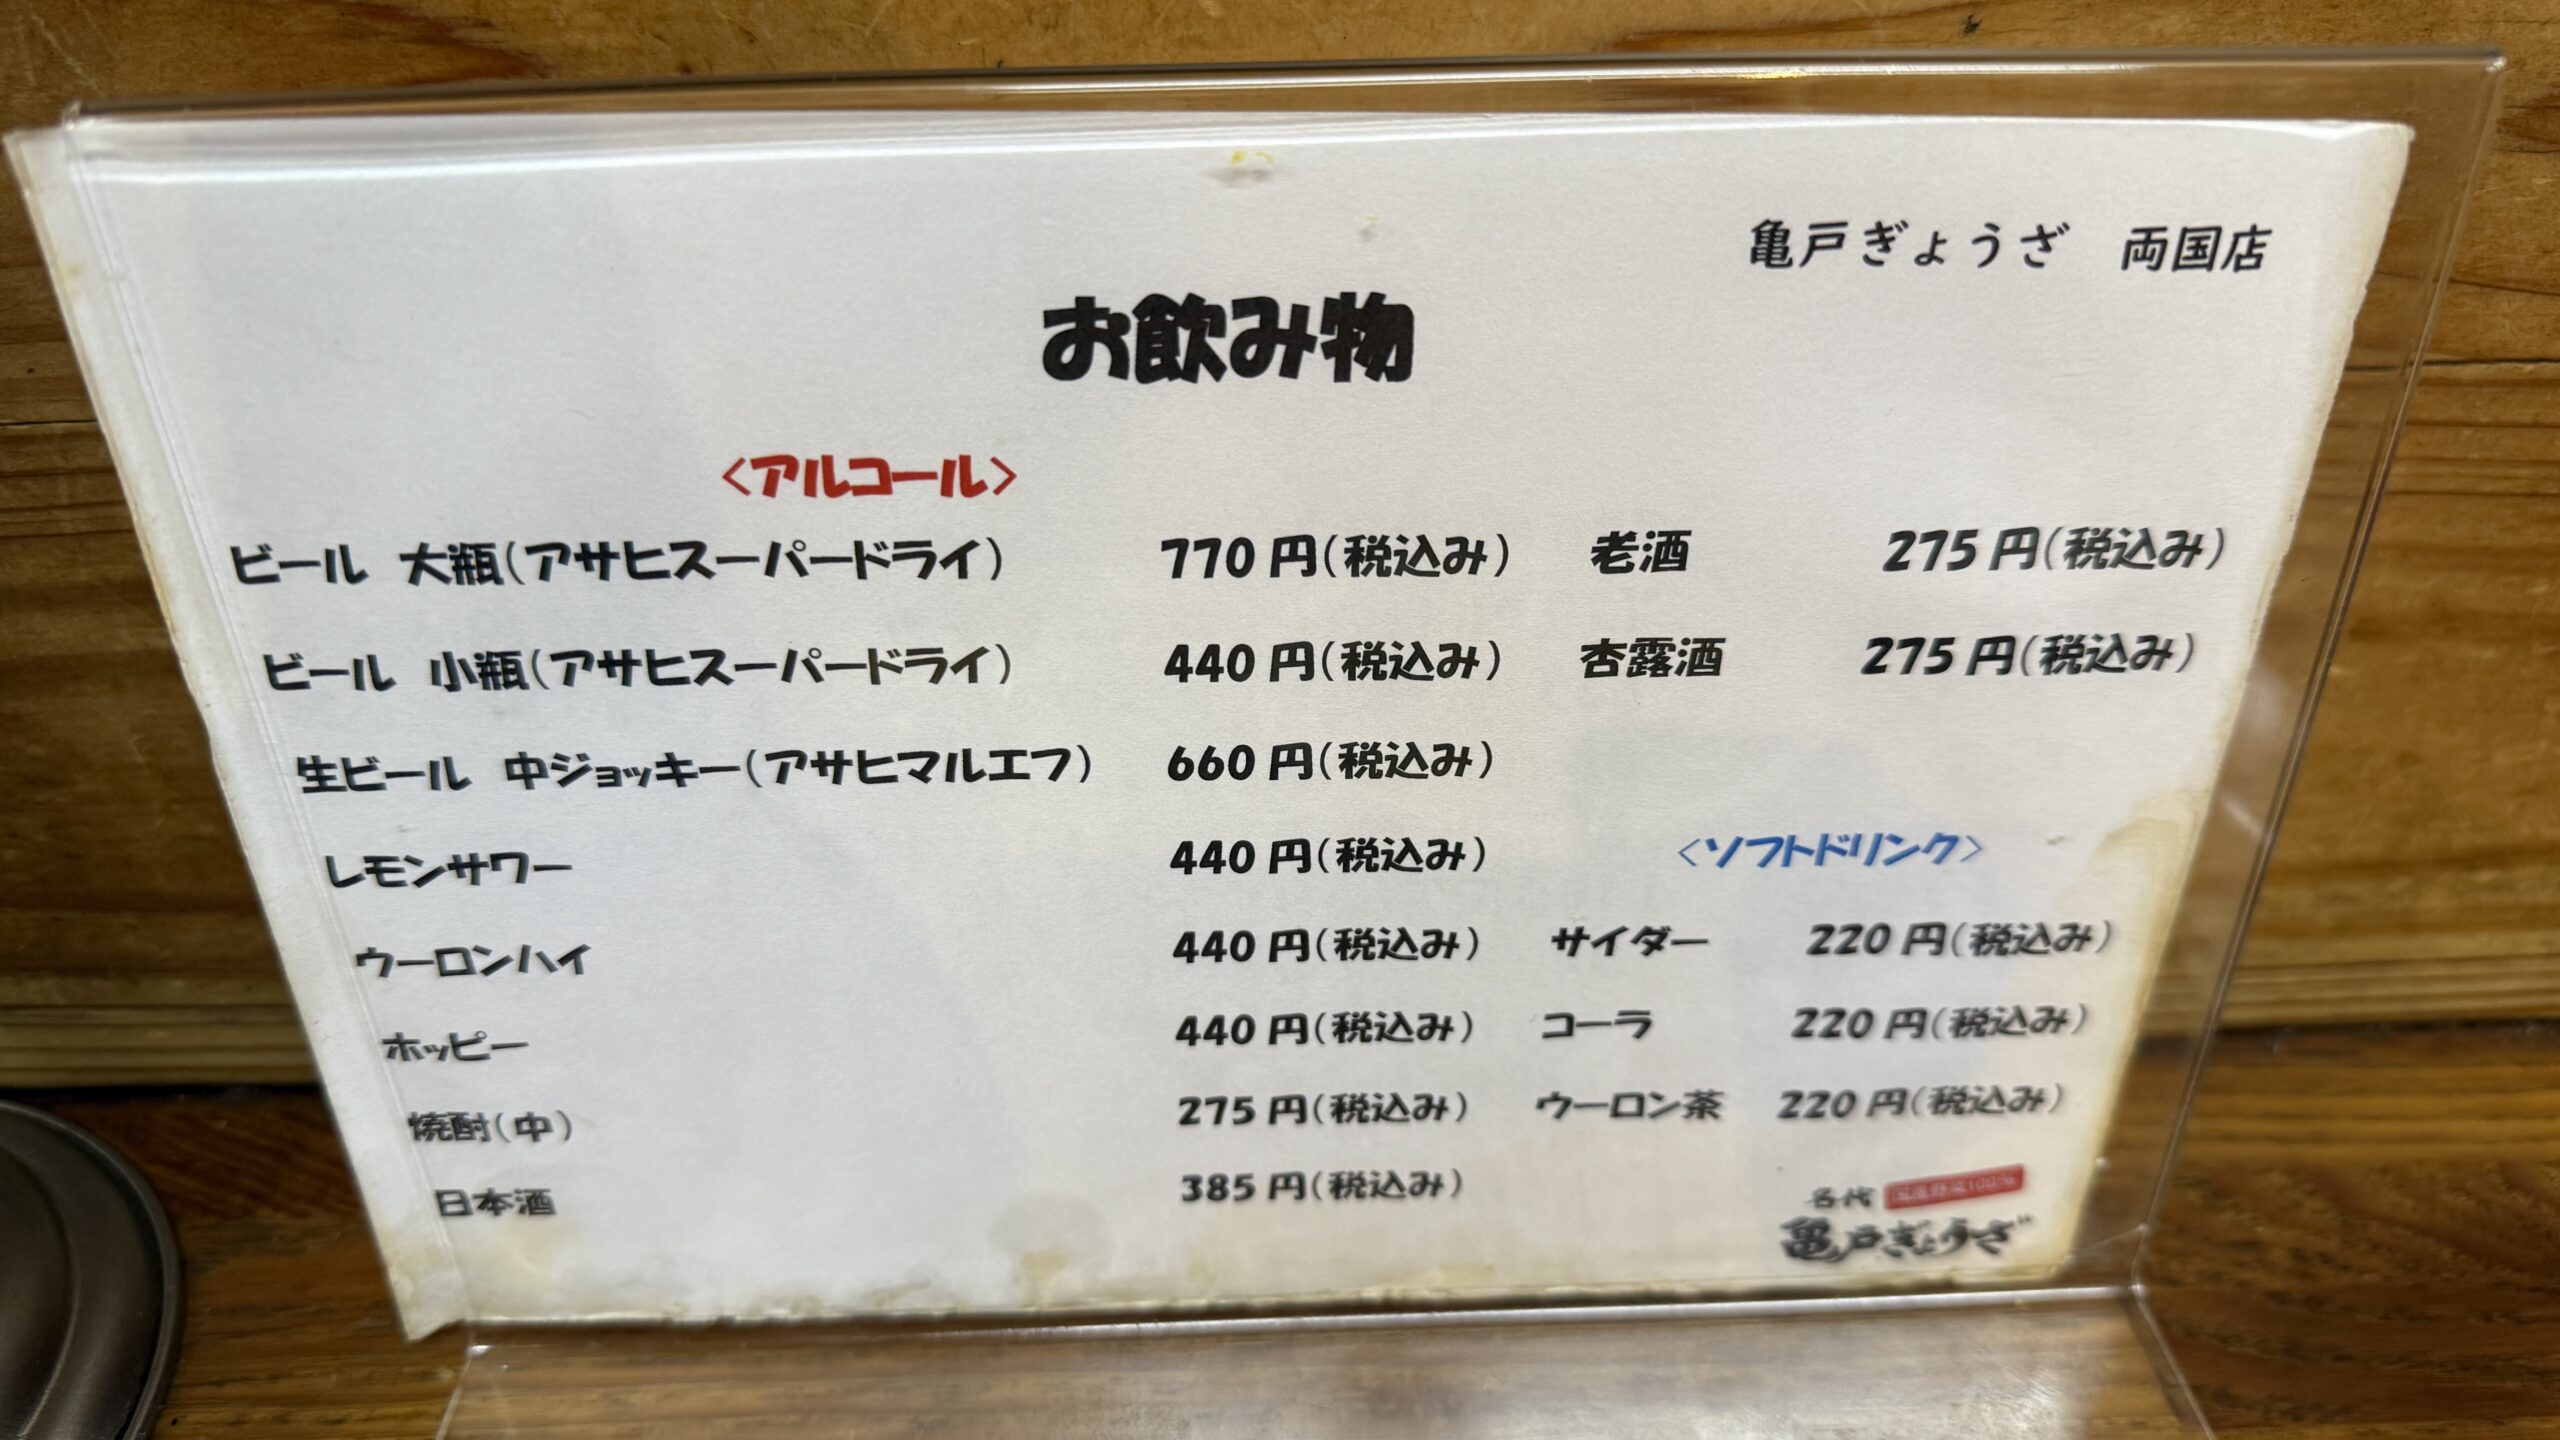 亀戸ぎょうざ 両国店
お飲み物
<アルコール>
ビール 大瓶(アサヒスーパードライ) 770円(税込み)
ビール 小瓶(アサヒスーパードライ) 440円(税込み)
生ビール 中ジョッキー(アサヒマルエフ) 660円(税込み)
レモンサワー 440円(税込み)
ウーロンハイ 440円(税込み)
ホッピー 440円(税込み)
焼酎(中) 275円(税込み)
日本酒 385円(税込み)
老酒 275円(税込み)
杏露酒 275円(税込み)
<ソフトドリンク>
サイダー 220円(税込み)
コーラ 220円(税込み)
ウーロン茶 220円(税込み)
国産野菜100%
亀戸ぎょうざ